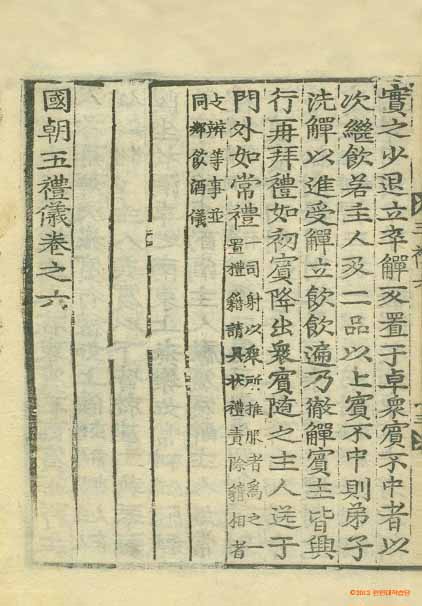 賓之少退立卒觶反置于卓衆賓不中者以
次繼飮若主人及二品以上賓不中則弟子
洗觶以進受觶立飮飮遍乃徹觶賓主皆興
行再拜禮如初賓降出衆賓隨之主人送于
門外如常禮一司射以衆所推服者爲之一
置禮籍請具狀禮責除籍相者
之辨等事並
同鄕飮酒儀
國朝五禮儀卷之六
©2013